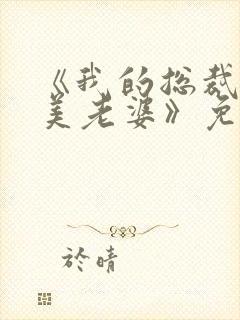 《我的总裁
美老婆》免
於晴